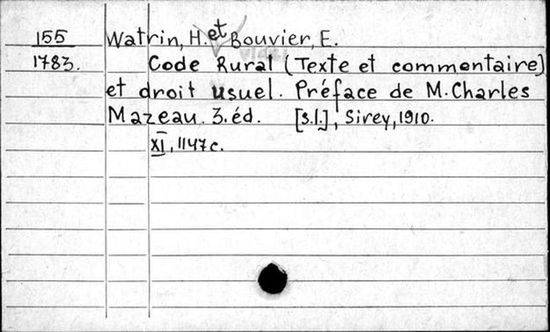 155 Watrin, H. et Bouvier, E.
1783. Code Rural (Texte et commentaire)
et droit usuel. Préface de M. Charles
Mazeau. 3. éd. [s.l.], Sirey, 1910.
XI, 1147 c.